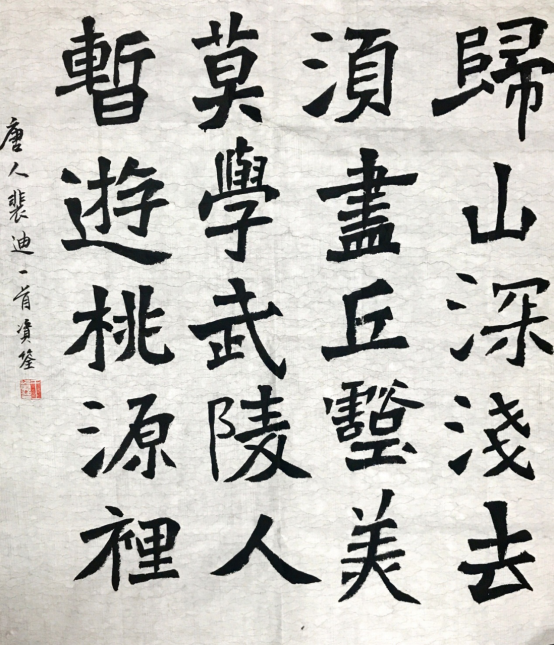 歸山深淺去
須盡丘壑美
莫學武陵人
暫遊桃源裡
唐人裴迪一首